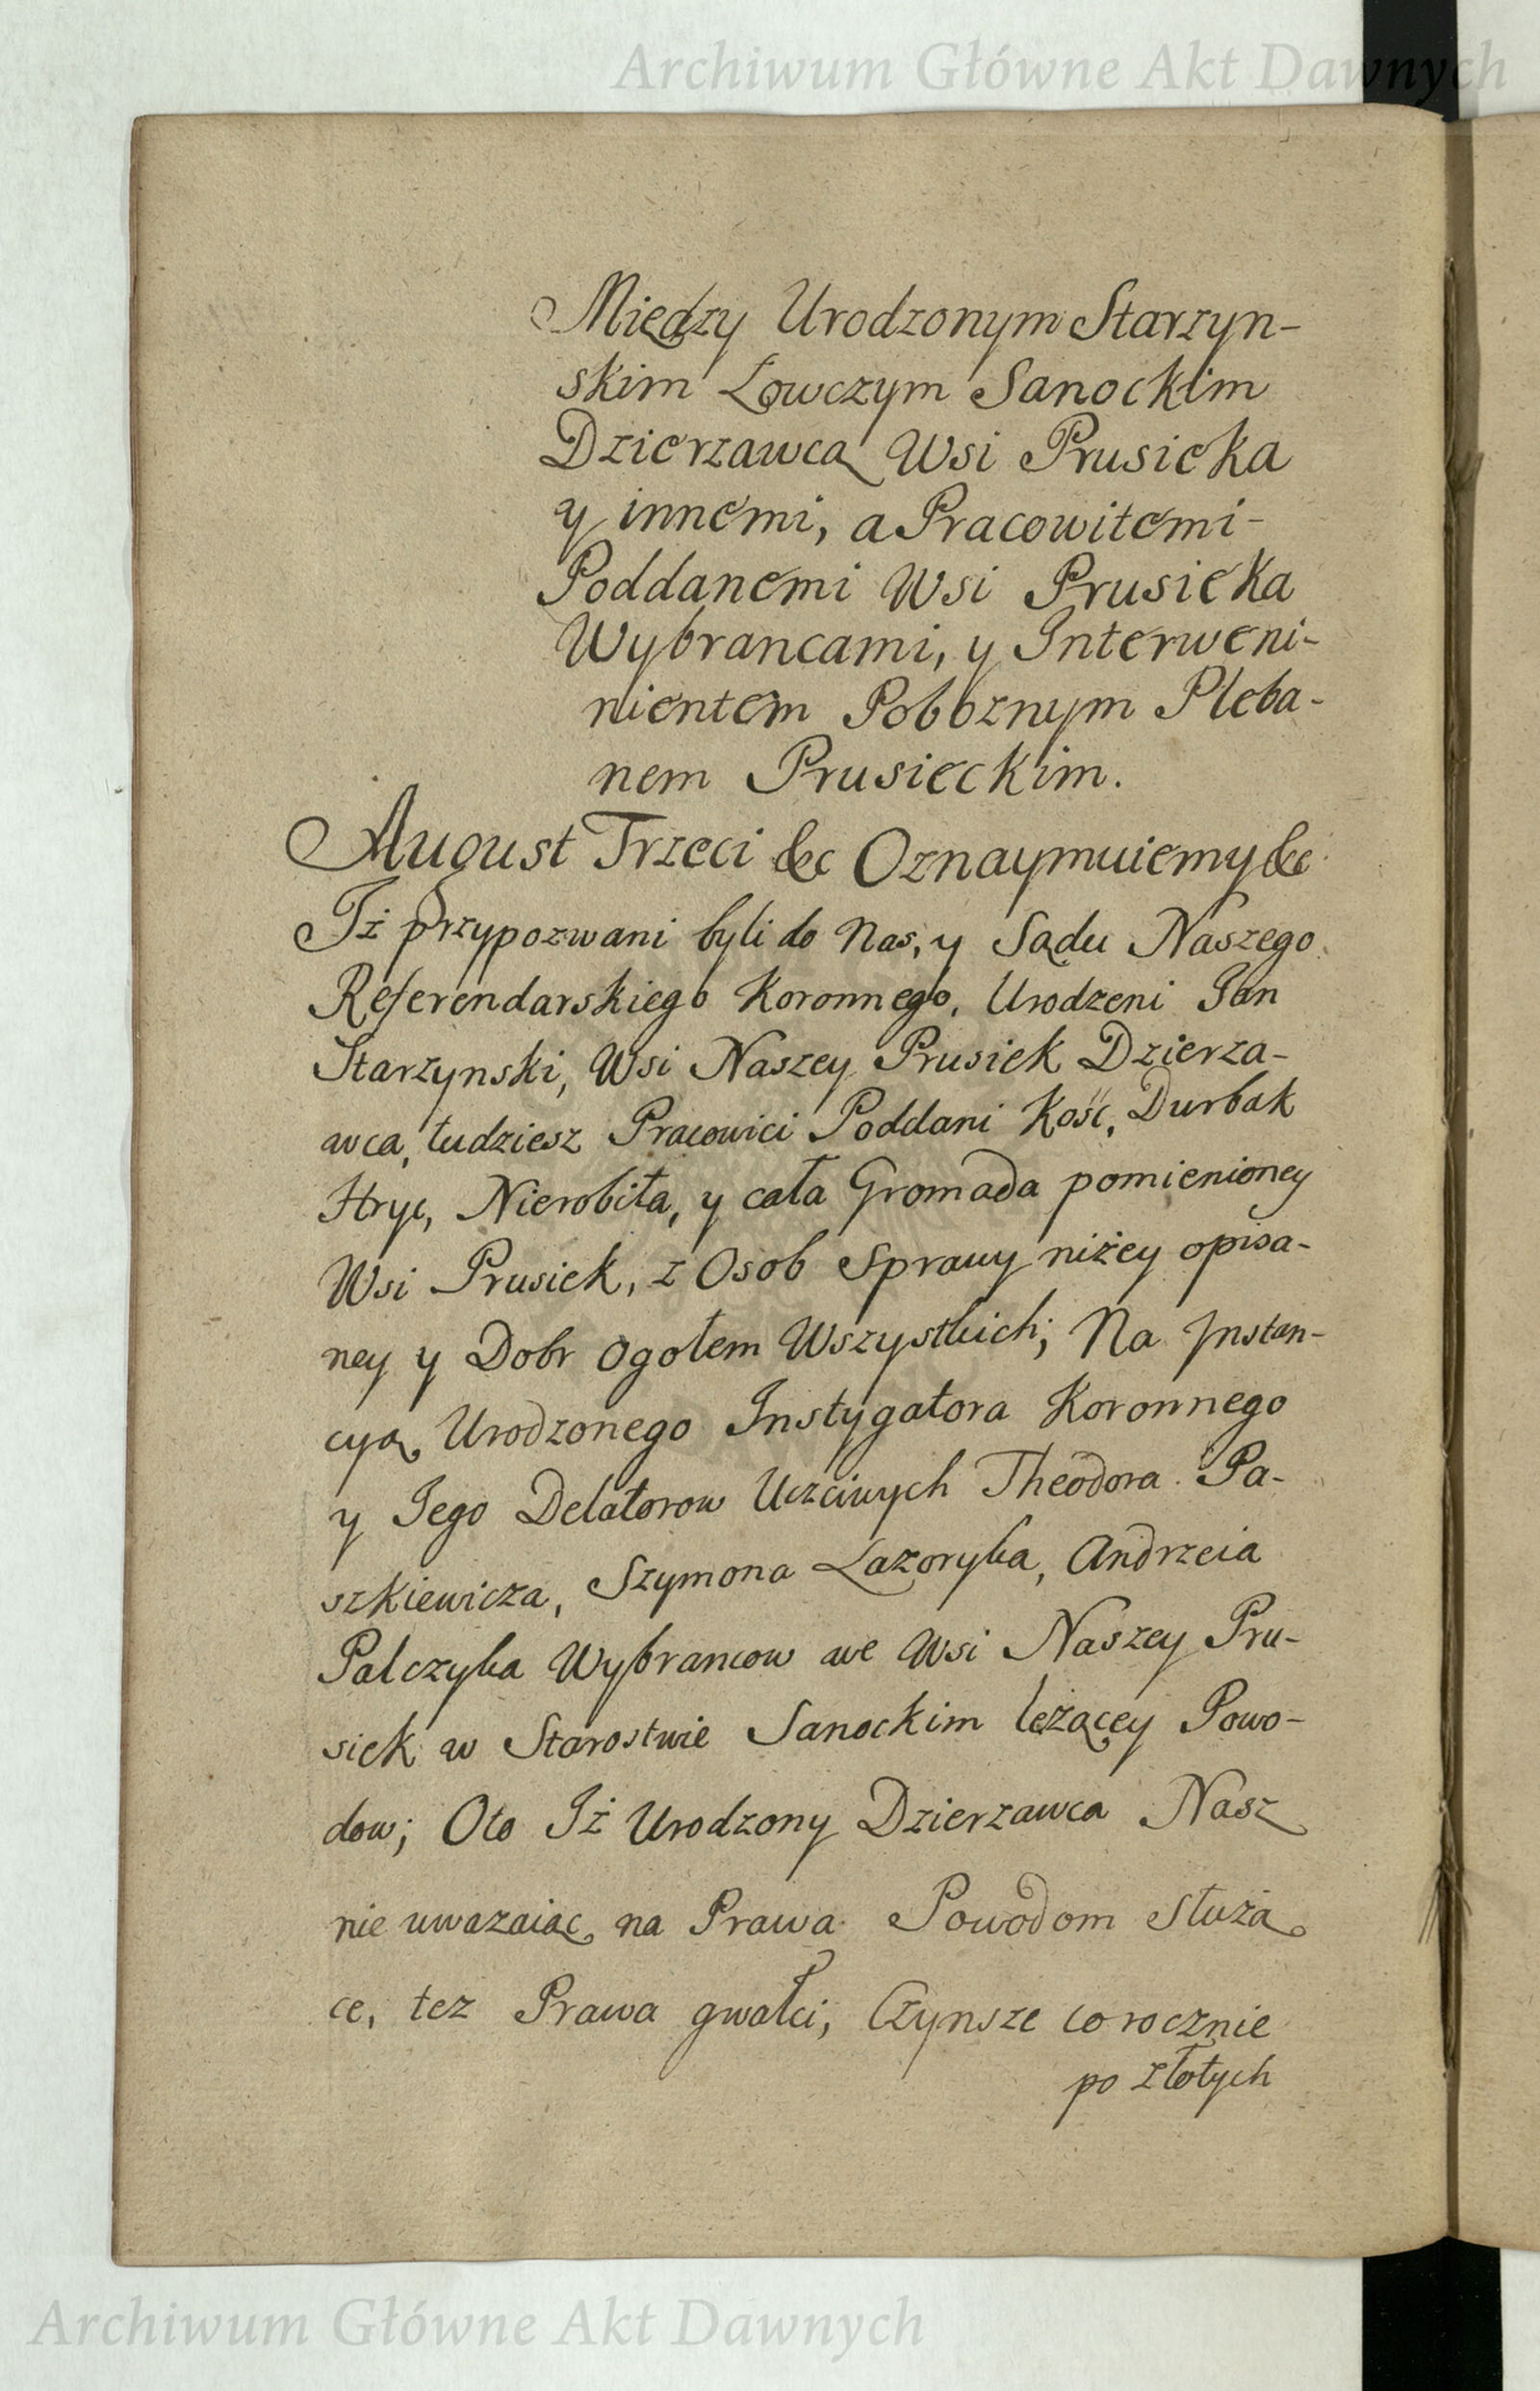 Archiwum Główne Akt Dawnych
Między Urodzonym Starzyn-
skim Łowczym Sanockim
Dzierzawcą Wsi Prusieka
y innemi, a Pracowitemi-
Poddanemi Wsi Prusieka
Wybrancami, y Interweni-
nientem Pobożnym Pleba-
nem Prusieckim.
August Trzeci &c Oznaymuiemy &c
Iż przypozwani byli do Nas, y Sądu Naszego
Referendarskiego Koronnego, Urodzeni Jan
Starzynski, Wsi Naszey Prusiek Dzierza-
wca, tudziesz Pracowici Poddani Kość, Durbak
Hryc, Nierobiła, y cała Gromada pomienioney
Wsi Prusiek, z Osob Sprawy niżey opisa-
ney y Dobr ogołem Wszystkich; Na Instan-
cyą Urodzonego Instygatora Koronnego
y Jego Delatorow Uczciwych Theodora Pa-
szkiewicza, Szymona Łazoryka, Andrzeia
Palczyka Wybrancow we Wsi Naszey Pru-
siek w Starostwie Sanockim leżącey Powo-
dow; Oto Iż Urodzony Dzierzawca Nasz
nie uwazaiąc na Prawa Powodom służą
ce, tez Prawa gwałci, Czynsze corocznie
po złotych
Archiwum Główne Akt Dawnych